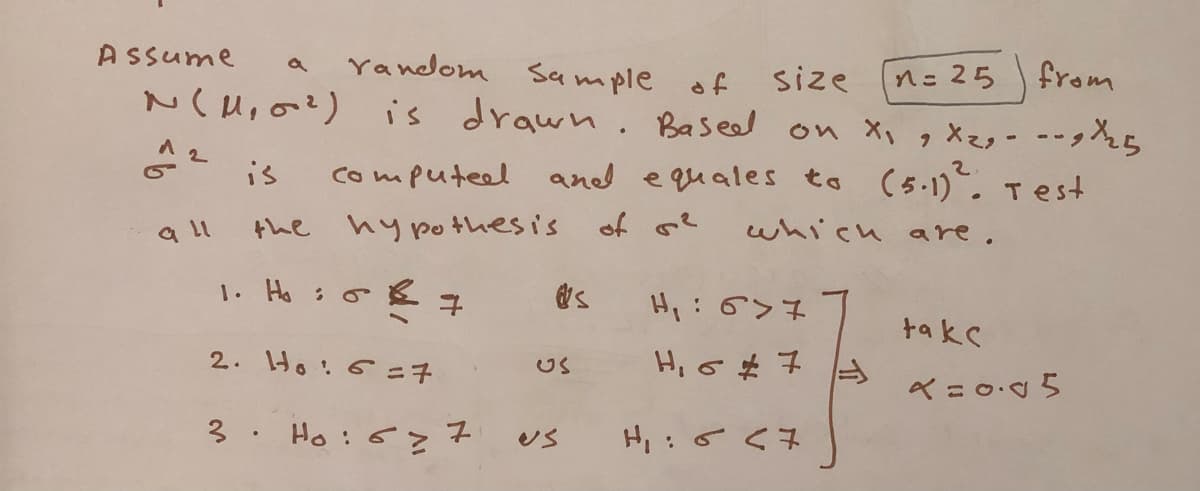 Assume a random sample of size n=25 from
N(μ,σ²) is drawn. Based on X₁, X₂,---,X₂₅
σ̂² is computed and equales to (5.1)². Test
all the hypothesis of σ² which are.
1. H₀ : σ ≤ 7 vs H₁ : σ>7
take
2. H₀ : σ =7 vs H₁ σ ≠ 7 ⇒
α = 0.05
3. H₀ : σ ≥ 7 vs H₁ : σ <7